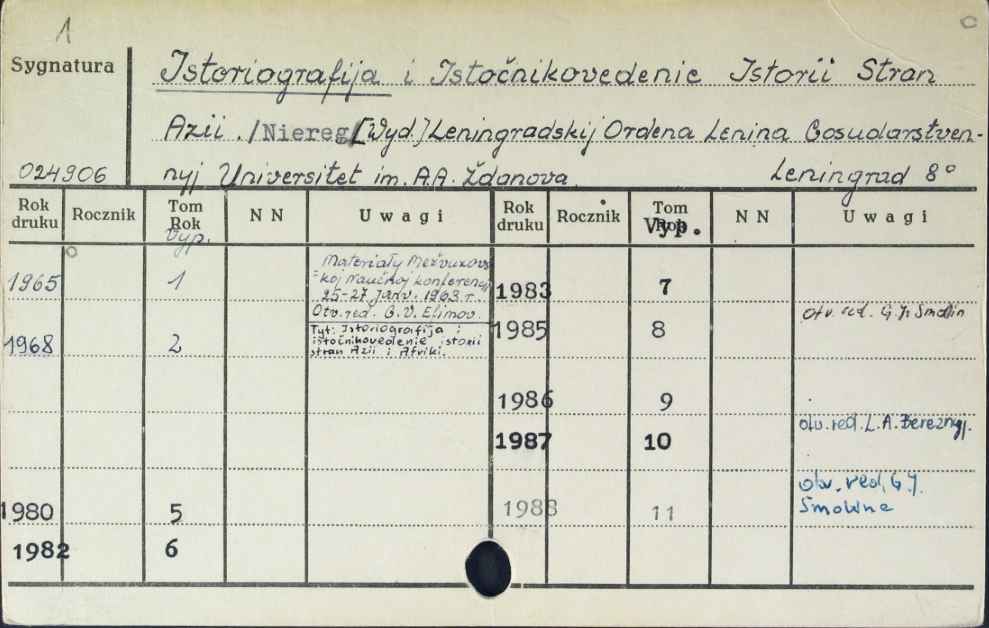 1
Sygnatura
Istoriografija i Istočnikovedenie Istorii Stran
Azii. /Niereg/ [Wyd.] Leningradskij Ordena Lenina Gosudarstven-
024906 nyj Universitet im. A.A. Ždanova. Leningrad 8°
Rok druku Rocznik Tom Rok Vyp. N N Uwagi Rok druku Rocznik Tom Vyp. N N Uwagi
1965 1
Materiały Mežvuzovs-
koj naučnoj konferencji
25-27 janv. 1963 r.
Otv. red. G.V. Efimov.
1968 2
Tyt: Istoriografija i
istočnikovedenie istorii
stran Azii i Afriki.
1980 5
1982 6
1983 7
1985 8 otv. red. G. J. Smolin
1986 9
1987 10 otv. red. L. A. Bereznyj.
1988 11 otv. red. G. J.